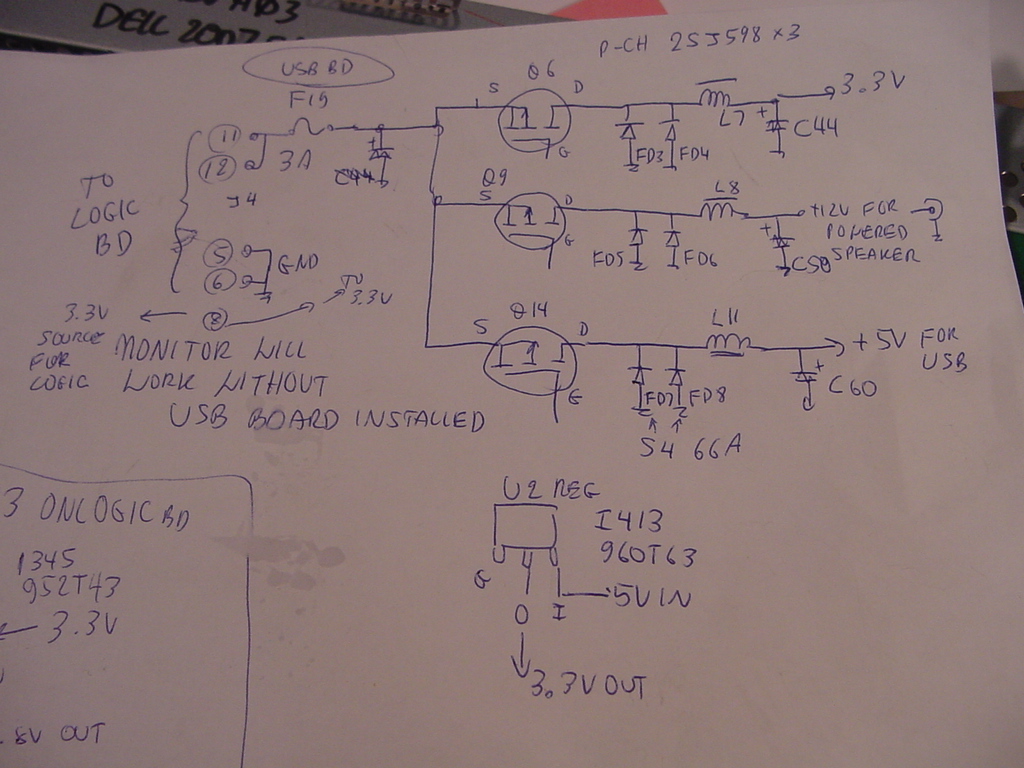 DELL 2007
USB BD
P-CH 2SJ598 x 3
F19
3A
11
12
J4
TO
LOGIC
BD
5
6
GND
8
TO
3.3V
3.3V
SOURCE
FOR
LOGIC
MONITOR WILL
WORK WITHOUT
USB BOARD INSTALLED
C44
Q6
S
D
G
FD3
FD4
L7
+
C44
3.3V
Q9
S
D
G
FD5
FD6
L8
+
C50
+12V FOR
POWERED
SPEAKER
Q14
S
D
G
FD7
FD8
S4 66A
L11
+
C60
+5V FOR
USB
U2 REG
I413
960T63
G
O
I
5V IN
3.3V OUT
3 ON LOGIC BD
1345
952T43
3.3V
.8V OUT